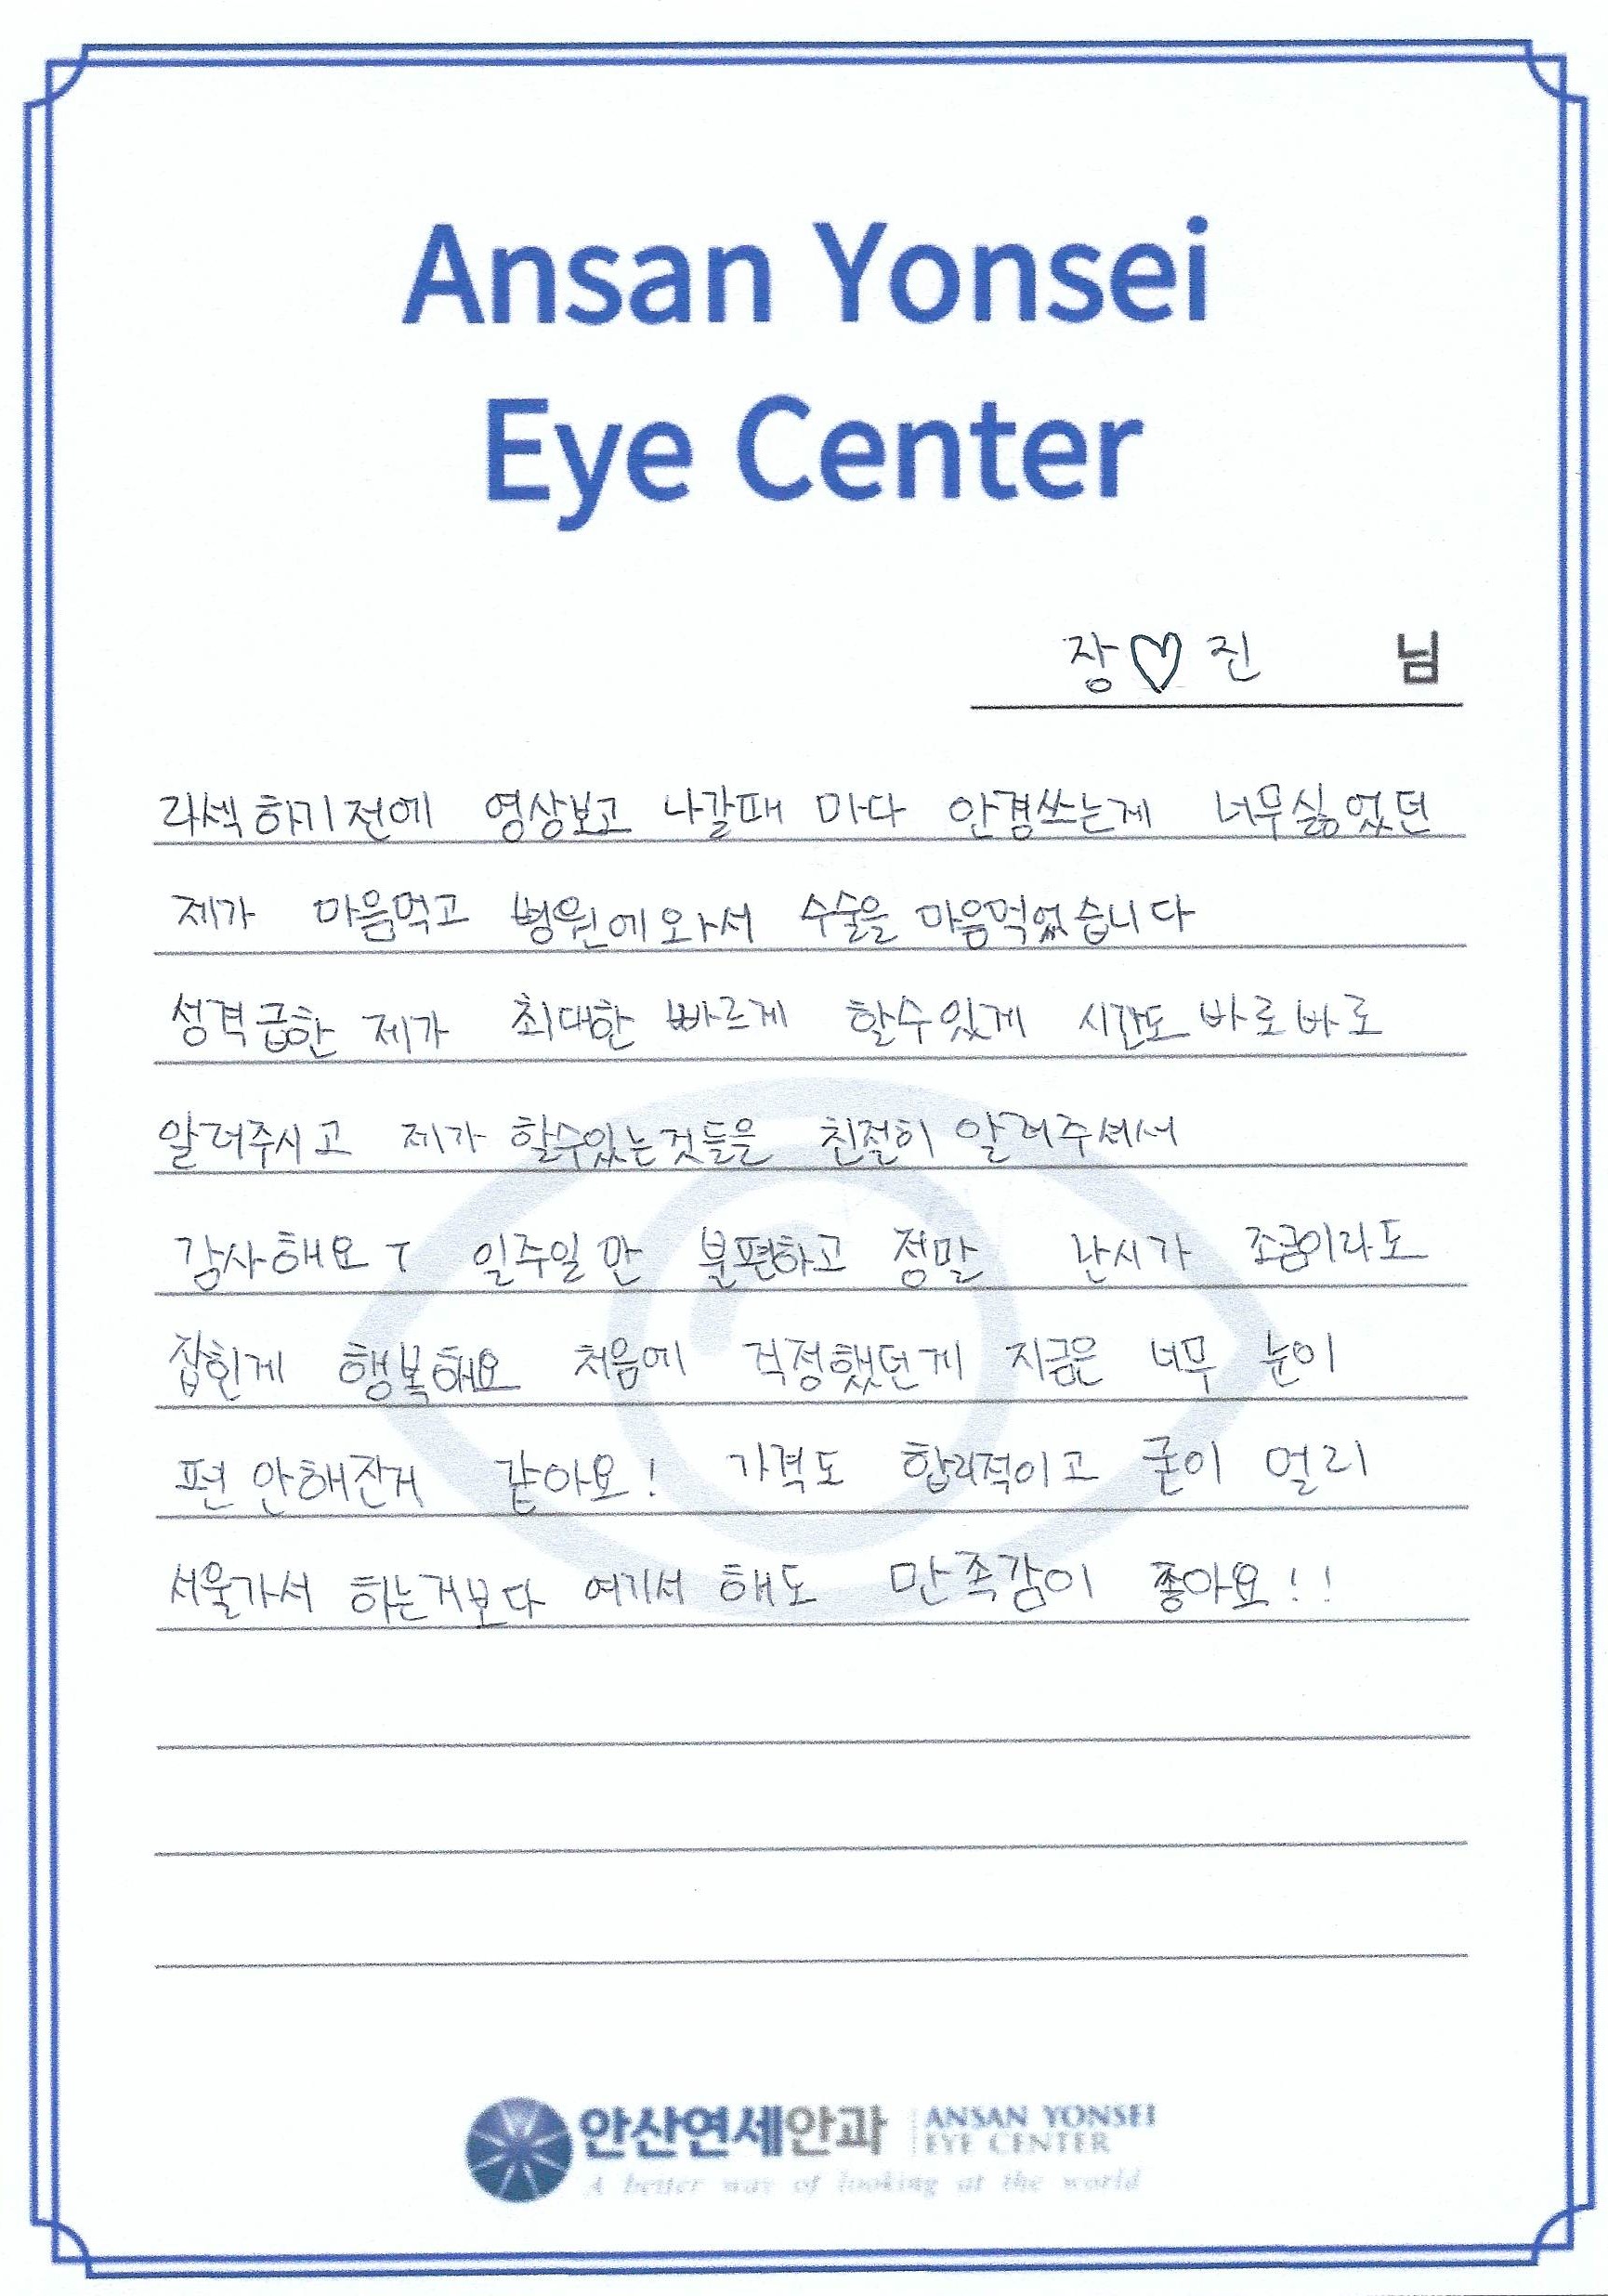 Ansan Yonsei
Eye Center
장♡진 님
라섹하기전에 영상보고 나갈때 마다 안경쓰는게 너무싫었던
제가 마음먹고 병원에와서 수술을 마음먹었습니다
성격급한 제가 최대한 빠르게 할수있게 시간도 바로바로
알려주시고 제가 할수있는것들을 친절히 알려주셔서
감사해요ㅜ 일주일만 불편하고 정말 난시가 조금이라도
잡힌게 행복해요 처음에 걱정했던게 지금은 너무 눈이
편안해진거 같아요! 가격도 합리적이고 굳이 멀리
서울가서 하는거보다 여기서 해도 만족감이 좋아요!!
안산연세안과 ANSAN YONSEI
EYE CENTER
A better way of looking at the world